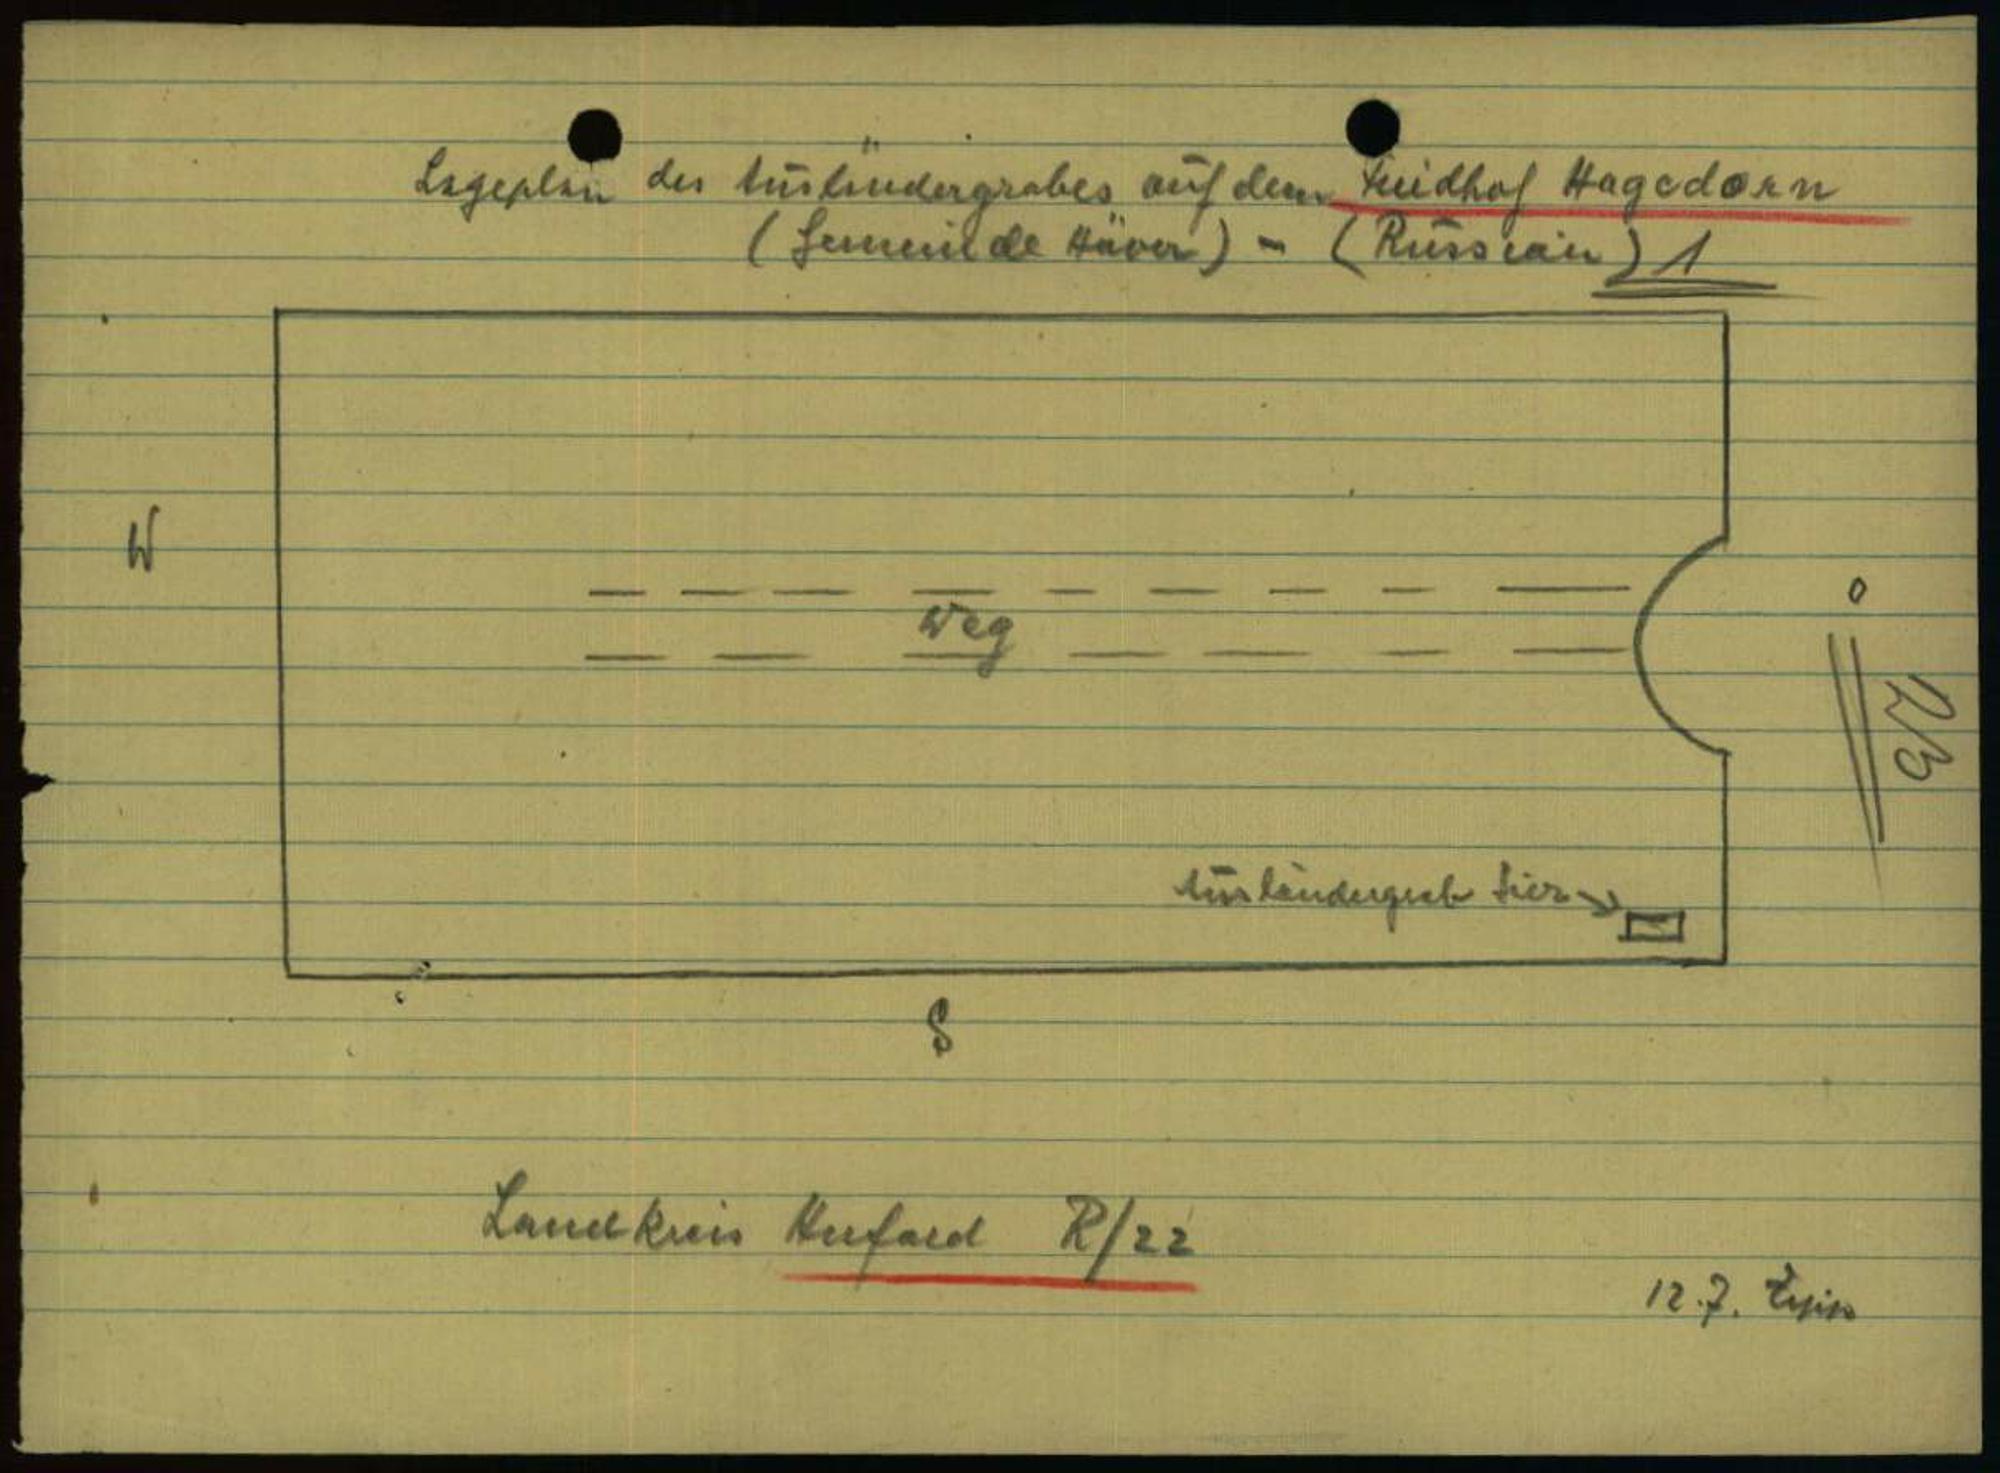 Lageplan des Ausländergrabes auf dem Friedhof Hagedorn
(Gemeinde Häver) - (Russian) 1
W
Weg
O
2/3
Ausländergrab hier
S
Landkreis Herford R/22
12.7.